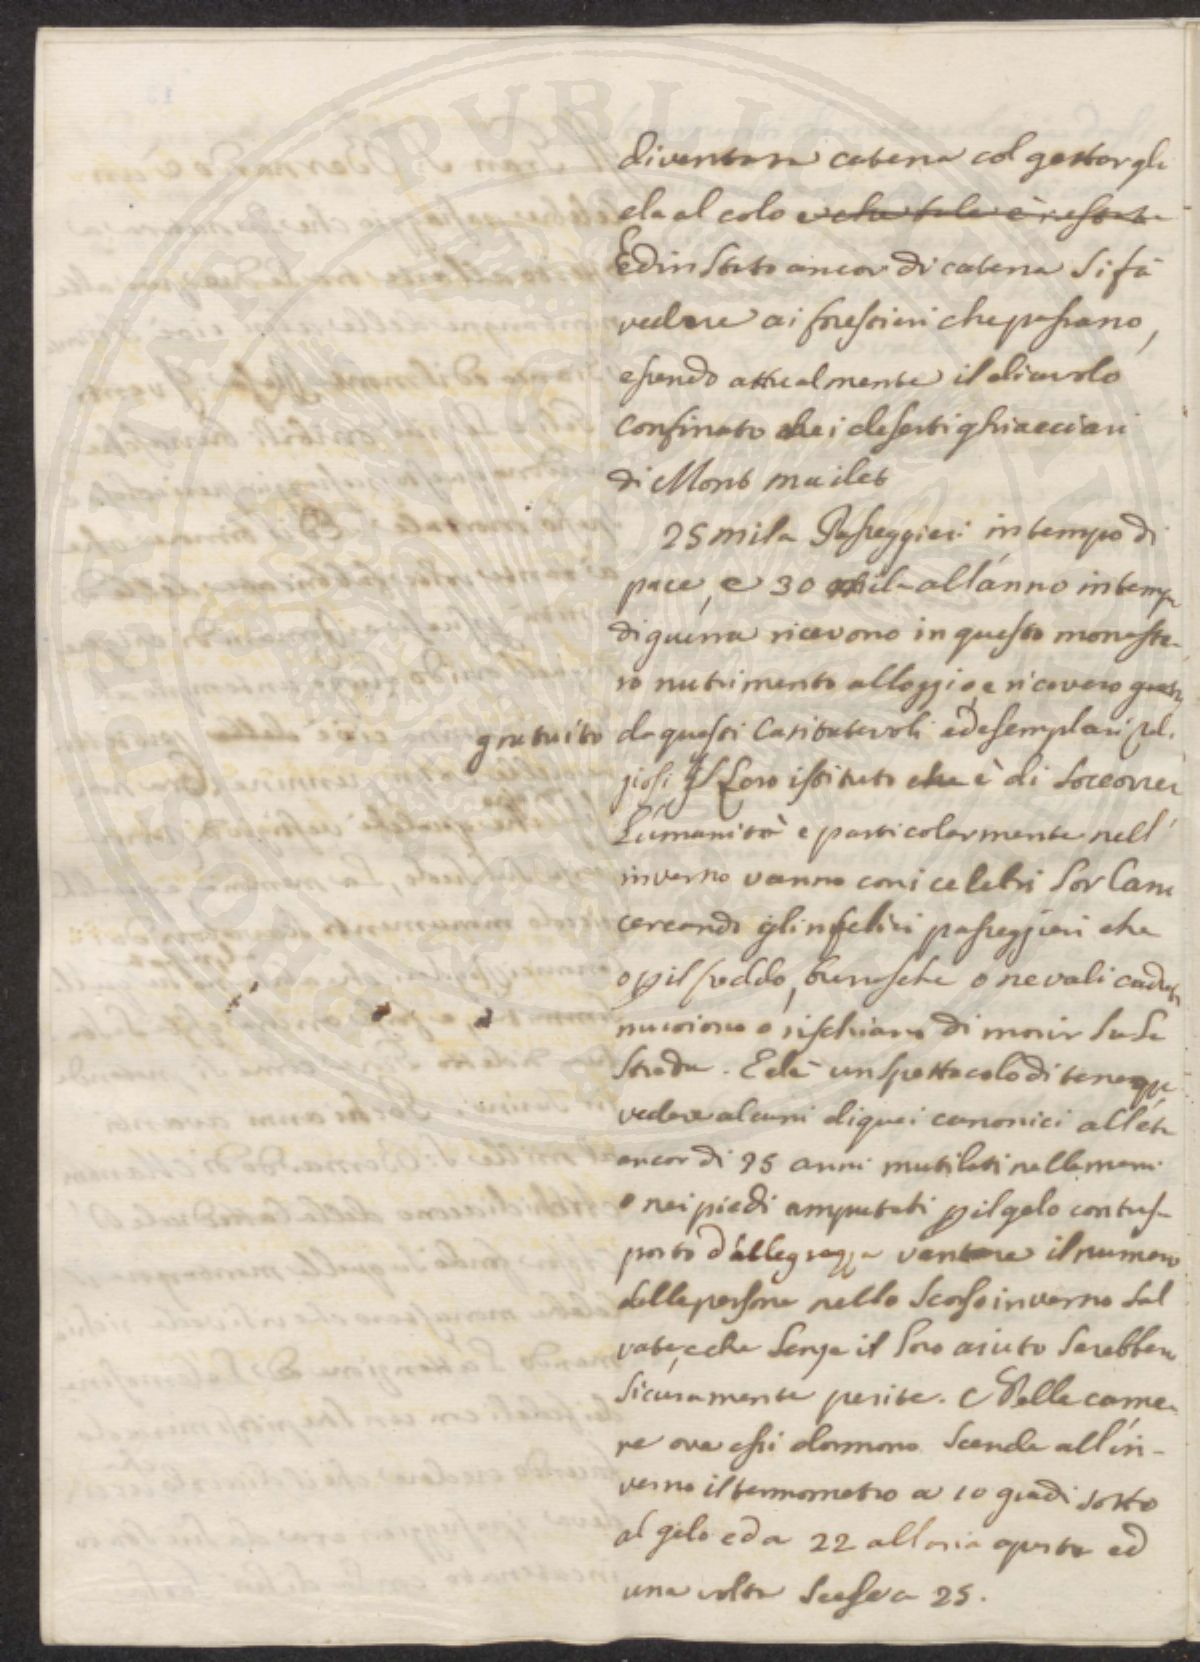 diventava catena col gettargli
ela al colo e che tale è restata
Ed in Stato ancor di catena si fà
vedere ai forestieri che passano,
essendo attualmente il diavolo
confinato nei deserti ghiacciari
di Mont mailet
25 mila Passeggieri in tempo di
pace, e 30 mila all'anno in tempo
di guerra ricevono in questo monaste-
ro nutrimento alloggio, e ricovero
gratuito da questi Caritatevoli ed esemplari reli-
giosi Il Loro istituto che è di soccorrer
L'umanità e particolarmente nell'
inverno vanno con i celebri lor Cani
cercando gl'infelici passeggieri che
o p il freddo, burasche o nevali caduti
muoiono o rischiano di morir su la
strada. Ed è un spettacolo di tenerezza
vedere alcuni di quei canonici all'età
ancor di 25 anni mutilati nelle mani
o nei piedi amputati p il gelo con tras-
porto d'allegrezza vantare il numero
delle persone nello scorso inverno sal
vate, e che senza il loro aiuto sarebbero
sicuramente perite. Nelle came-
re ove essi dormono scende all'in-
verno il termometro a 10 gradi sotto
al gelo ed a 22 all'aria aperta ed
una volta scese a 25.